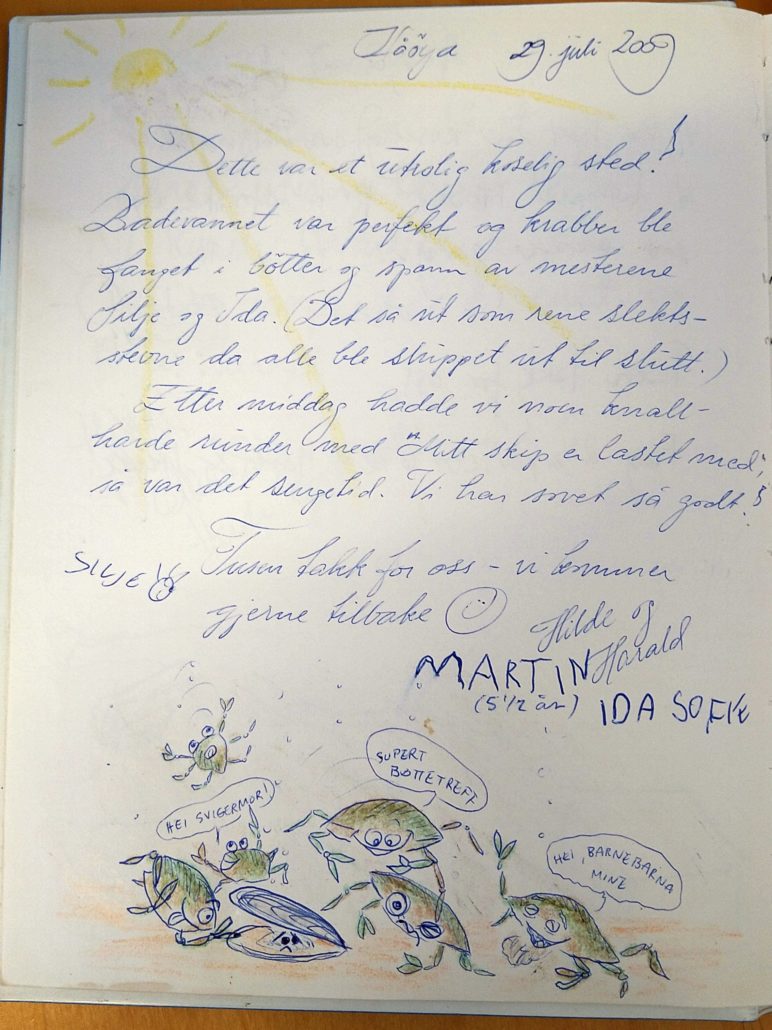 Håøya 29. juli 2009
Dette var et utrolig koselig sted!
Badevannet var perfekt og krabber ble
fanget i bøtter og spann av mesterene
Silje og Ida. (Det så ut som rene slekts-
stevne da alle ble sluppet ut til slutt.)
Etter middag hadde vi noen knall-
harde runder med "Mitt skip er lastet med",
så var det sengetid. Vi har sovet så godt!
Tusen takk for oss - vi kommer
gjerne tilbake
SILJE
Hilde og
Harald
MARTIN
(5 1/2 år)
IDA SOFIE
SUPERT
BØTTETREFF
HEI SVIGERMOR!
HEI, BARNEBARNA
MINE